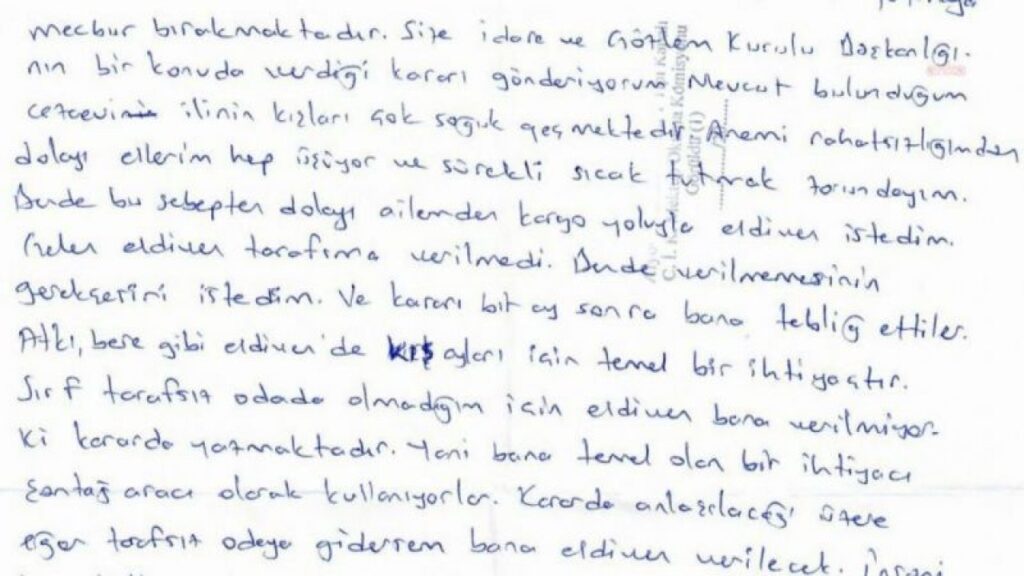 mecbur bırakmaktadır. Size idare ve Gözlem Kurulu Başkanlığı.
nın bir konuda verdiği kararı gönderiyorum Mevcut bulunduğum
cezaevinin ilinin kışları çok soğuk geçmektedir. Anemi rahatsızlığımdan
dolayı ellerim hep üşüyor ve sürekli sıcak tutmak zorundayım.
Bende bu sebepten dolayı ailemden kargo yoluyla eldiven istedim.
Gelen eldiven tarafıma verilmedi. Bende verilmemesinin
gerekçesini istedim. Ve kararı bir ay sonra bana tebliğ ettiler.
Atkı, bere gibi eldiven'de kış ayları için temel bir ihtiyaçtır.
Sırf tarafsız odada olmadığım için eldiven bana verilmiyor.
Ki kararda yazmaktadır. Yani bana temel olan bir ihtiyacı
şantaj aracı olarak kullanıyorlar. Kararda anlaşılacağı üzere
eğer tarafsız odaya gidersem bana eldiven verilecek. İnsani